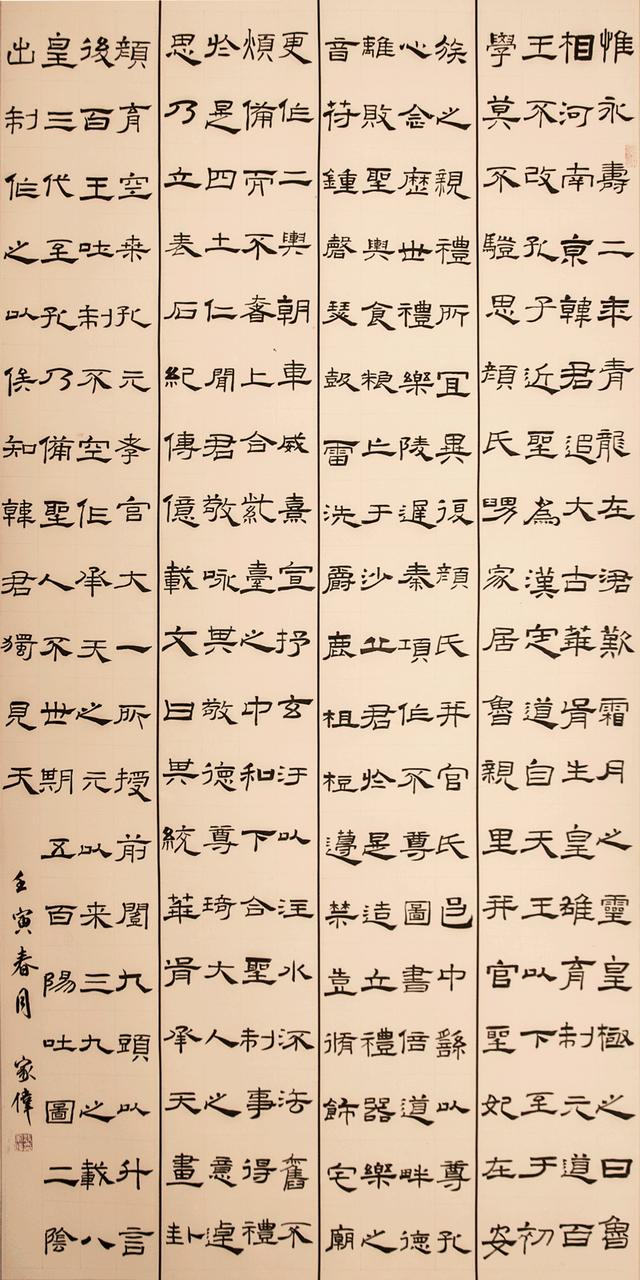 惟永壽二年青龍在涒歎霜月之靈皇極之日魯
相河南京韓君追大古華胥生皇雄育制元道百
王不改孔子近聖為漢定道自天王以下至于初
學莫不驥思顏氏舅家居魯親里并官聖妃在安
族之親禮所宜異復顏氏并官氏邑中繇以尊孔
心念歷世禮樂陵遲秦項作不尊圖書倍道畔德
離敗聖輿食糧亡于沙丘君於是造立禮器樂之
音苻鍾磬瑟鼓雷洗爵鹿柤梪籩禁壺脩飾宅廟
更作二輿朝車威熹宣抒玄汙以注水流法舊不
煩備而不奢上合紫臺之中和下合聖制事得禮
於是四土仁聞君敬咏其敬德尊琦大人之意逴
思乃立表石紀傳億載文曰其統華胥承天畫卦
顏育空桑孔元孝官大一所授前闓九頭以升言
後百王吐制不空作承天之元以来三九之載八
皇三代至孔乃備聖人不世期五百陽吐圖二陰
出制作之以俟知韓君獨見天
壬寅春月 家偉